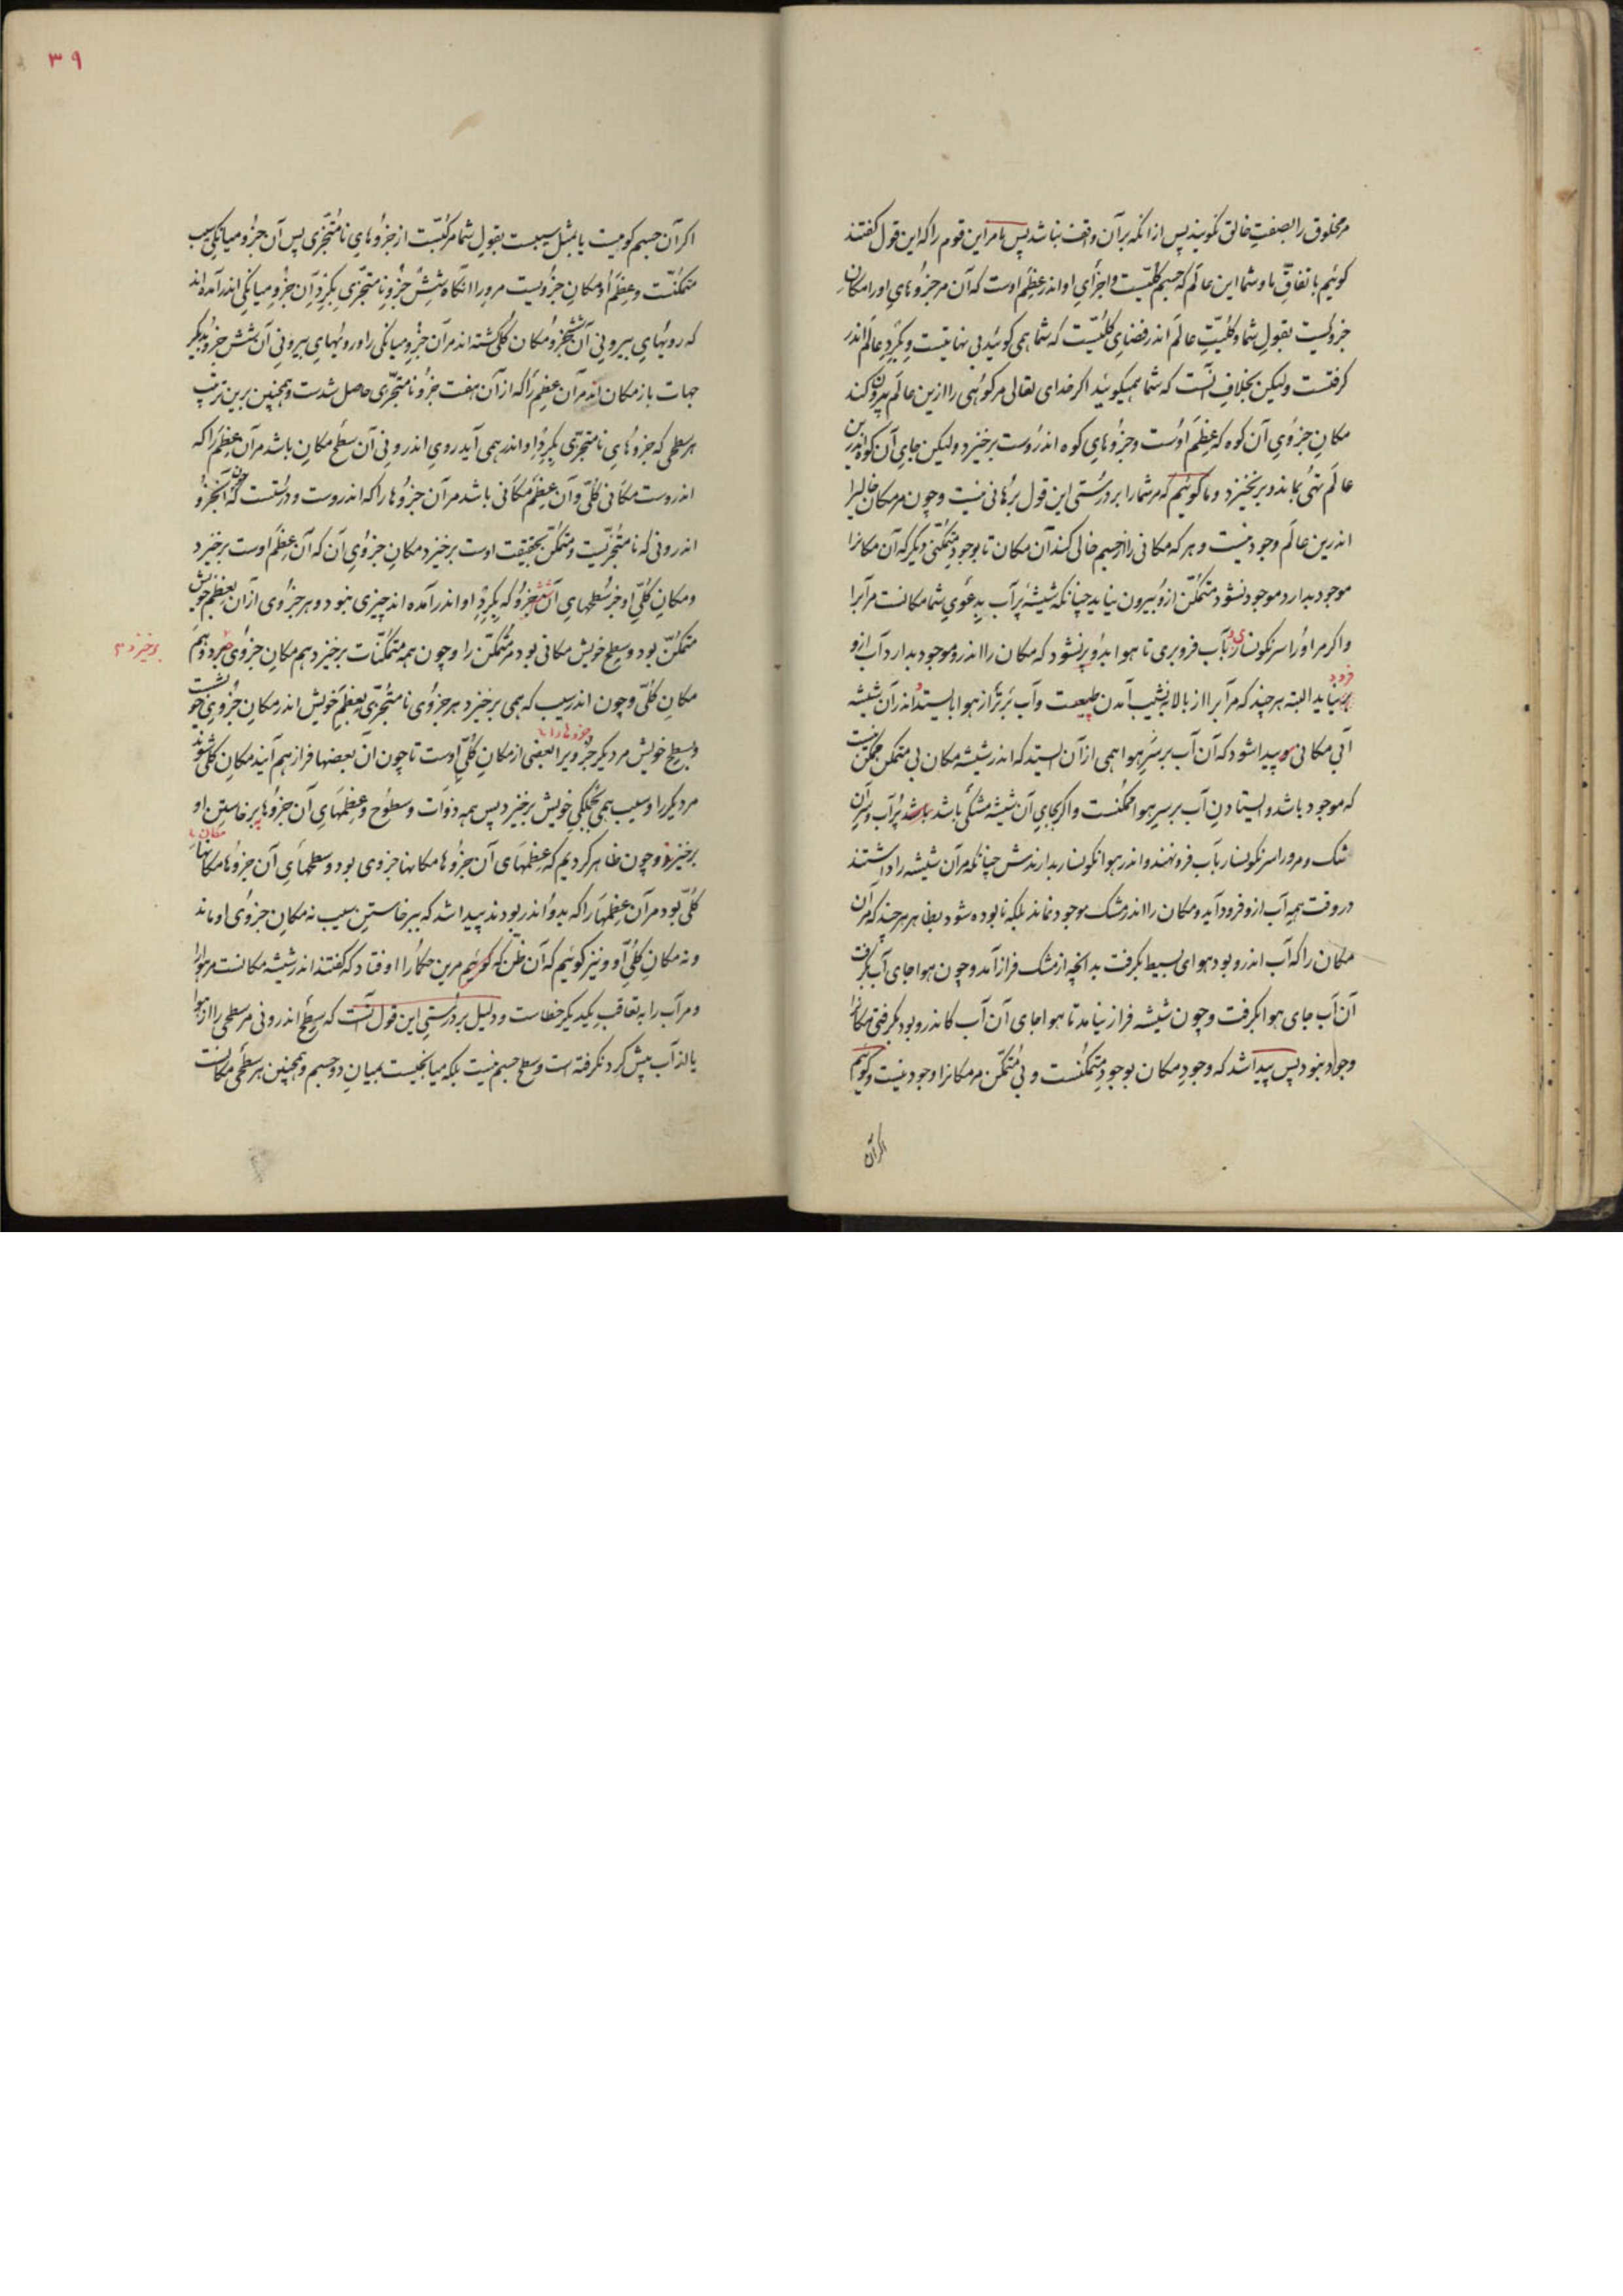 مر مخلوق را بصفتِ خالق نگویند پس از انکه بر آن واقف نباشد پس ما مر این قوم را که این قول گفتند
گوئیم باتفاقِ ما و شما این عالَم که جسم کلّیست و اجزایِ او اندر عِظَمِ اوست که آن مر جزوهایِ او را مکانِ
جزویست بقولِ شما و کلیّتِ عالَم اندر فضایِ کلّیست که شما همی گوئید بی نهایتست و بگردِ عالَم اندر
گرفتست ولیکن بخلافِ آنست که شما همیگوئید اگر خدای تعالی مر کوهی را ازین عالَم بیرون کند
مکانِ جزوی آن کوه که عِظَم اوست و جزوهایِ کوه اندروست برخیزد ولیکن جایِ آن کوه اندرین
عالَم تهی بماند و برنخیزد و ما گوئیم که مر شما را بر درستی این قول برهانی نیست و چون مر مکان خالیرا
اندرین عالَم وجود نیست و هر که مکانی را از جسم خالی کند آن مکان تا بوجودِ متمکّنی دیگر که آن مکانرا
موجود بدارد موجود نشود متمکّن ازو بیرون نیاید چنانکه شیشۀ پر آب بدعویِ شما مکانست مر آبرا
و اگر مر او را سرنگونسار بآب فرو بری تا هوا بدو بر نشود که مکان را اندرو موجود بدارد آب ازو
فرود نیاید البته هر چند که مر آبرا از بالا بنشیب آمدن طبیعت و آب برتر از هوا بایستد اندر آن شیشه
آبی مکانی و پیدا شود که آن آب بر سرِ هوا همی از آن ایستد که اندر شیشه مکان بی متمکن ممکن نیست
که موجود باشد و ایستادنِ آب بر سرِ هوا ممکنست و اگر بجایِ آن شیشه مشکی باشد پُر آب و سرِ آن
مشک و مرو را سرنگونسار بآب فرو نهند و اندر هوا نگونسار بدارندش چنانکه مر آن شیشه را داشتند
در وقت همه آب ازو فرود آید و مکان را اندر مشک موجود نماند بلکه نابوده شود بظاهر هر چند که مر آن
مکان را که آب اندرو بود هوای بسیط بگرفت بدانچه از مشک فراز آمد و چون هوا جای آب بگرفت
آن آب جای هوا بگرفت و چون شیشه فراز نیامد تا هوا جای آن آب کاندرو بود بگرفتی مکانرا
وجود نبود پس پیدا شد که وجودِ مکان بوجودِ متمکّنست و بی متمکّن مر مکانرا وجود نیست و گوئیم
اگر آن
۳۹
اگر آن جسم گوئیست یا بمثل سیبست بقولِ شما مرکّبست از جزوهایِ نامتجزّی پس آن جزوِ میانگیِ سیب
متمکّنست و عِظَمِ او مکانِ جزویست مرو را انگاه شش جزوِ نامتجزّی بگردِ آن جزوِ میانگی اندر آمده‌اند
که رویهایِ بیرونیِ آن شش جزو مکان کلّی گشته اند مر آن جزو میانگی را و رویهایِ بیرونیِ آن شش جزو بدیگر
جهات باز مکان اند مر آن عِظَم را که از آن هفت جزو نامتجزّی حاصل شدست و همچنین برین ترتیب
هر سطحی که جزوهایِ نامتجزّی بگردِ او اندر همی آید رویِ اندرونیِ آن سطح مکان باشد مر آن عِظَم را که
اندروست مکانی کلّی و آن عِظَم مکانی باشد مر آن جزوها را که اندروست و درستست که چون آن جزو
اندرونی که نامتجزّیست و متمکّن بحقیقت اوست برخیزد مکانِ جزوی آن که آن عِظَم اوست برخیزد
و مکانِ کلّیِ او جز سطحهایِ آن شش جزو که بگردِ او اندر آمده اند چیزی نبود و هر جزوی از آن بعِظَمِ خویش
متمکّن بود و بسطحِ خویش مکانی بود مر متمکّن را و چون همه متمکّنات برخیزد هم مکانِ جزوی برخیزد و هم
برخیزد
مکانِ کلّی و چون اندر سیب که همی برخیزد هر جزوی نامتجزّی بعِظَمِ خویش اندر مکانِ جزویِ خویشست
و بسطحِ خویش مر دیگر جزوها را بعضی از مکانِ کلّیِ اوست تا چون آن بعضها فراز هم آیند مکانِ کلّی شوند
مر دیگر را و سیب همی بکلّیِ خویش برخیزد پس همه ذوات و سطوح و عِظمهایِ آن جزوها برخاستنِ او
برخیزد و چون ظاهر کردیم که عِظمهای آن جزوها مکانها جزوی بود و سطحهایِ آن جزوها مکانهاء
کلّی بود مر آن عِظمها را که بدو اندر بودند پیدا شد که ببرخاستنِ سیب نه مکانِ جزوی او ماند
و نه مکانِ کلّیِ او و نیز گوئیم که آن ظن که مرین حکما را اوفتاد که گفتند اندر شیشه مکانست مر هوا را
و مر آب را به تعاقبِ یکدیگر خطاست و دلیل بر درستیِ این قول آنست که سطحِ اندرونی مر سطحی را از هوا
یا از آب پیش گرد نگرفته است و سطح جسم نیست بلکه میانجیست بمیانِ دو جسم و همچنین هر سطحی مکانست